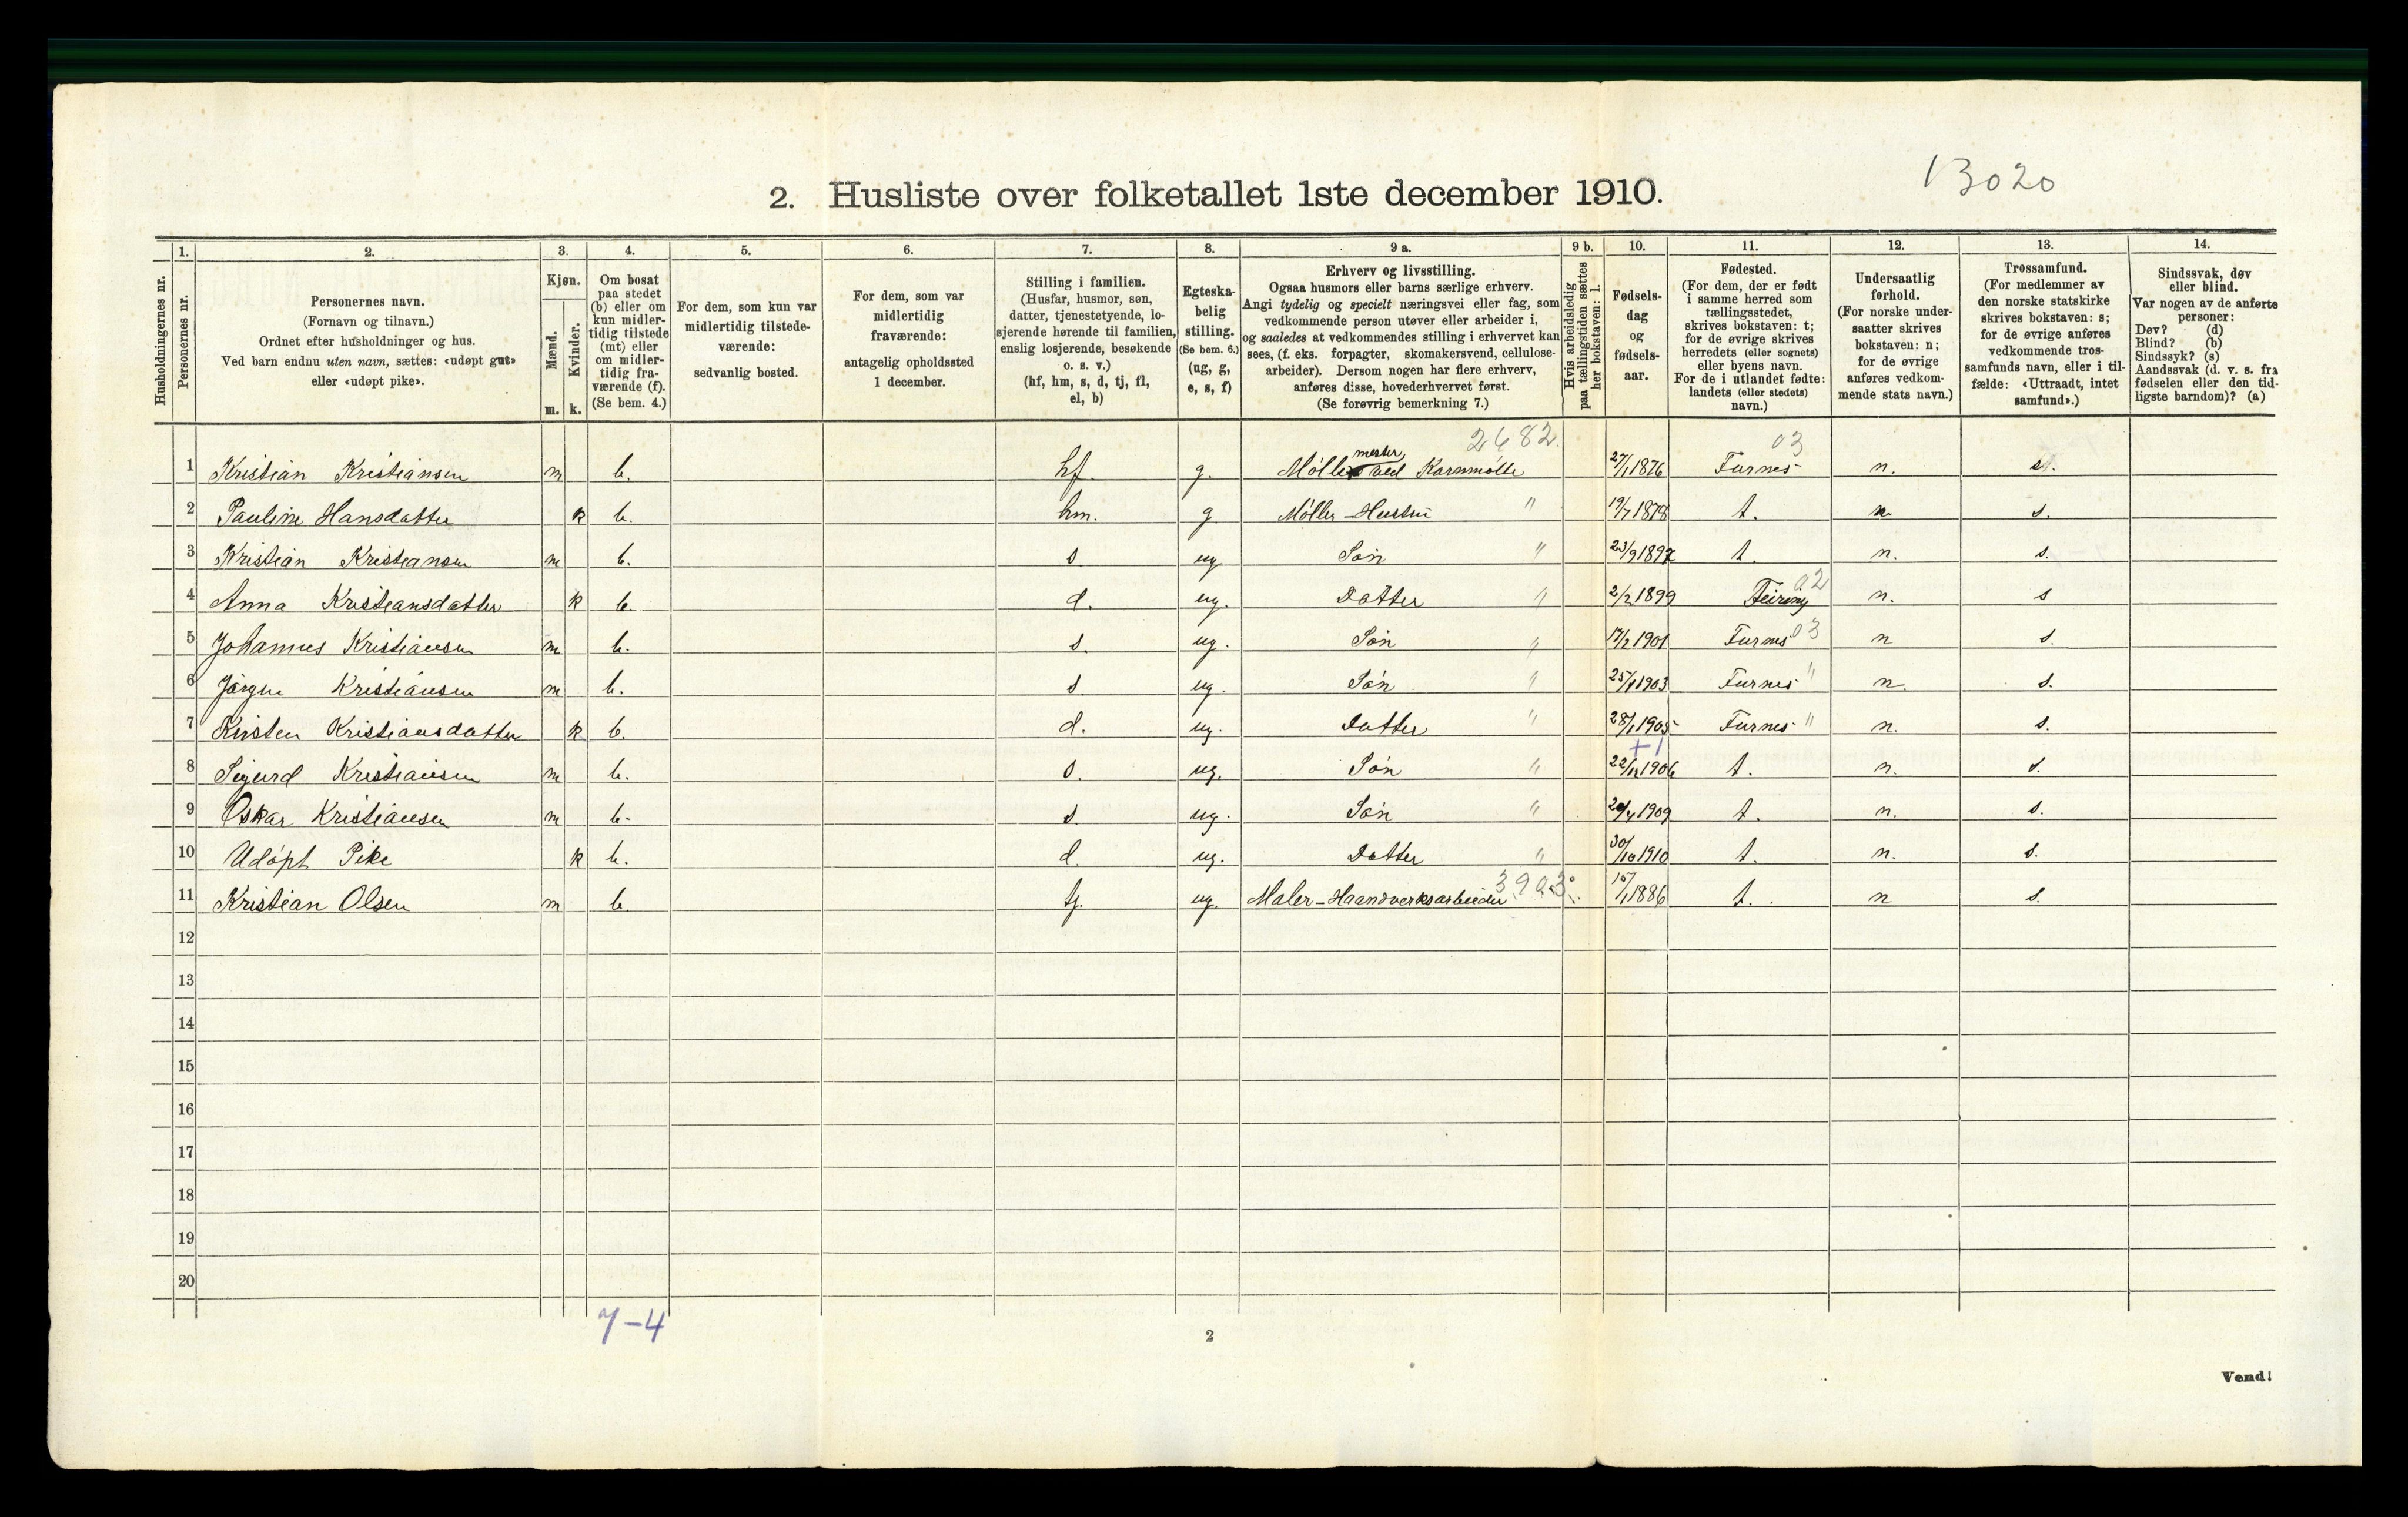 13020
2. Husliste over folketallet 1ste december 1910.
Husholdningernes nr.
1.
Personernes nr.
2.
Personernes navn.
(Fornavn og tilnavn.)
Ordnet efter husholdninger og hus.
Ved barn endnu uten navn, sættes: «udøpt gut»
eller «udøpt pike».
3.
Kjøn.
Mænd.
Kvinder.
m. k.
4.
Om bosat
paa stedet
(b) eller om
kun midler-
tidig tilstede
(mt) eller
om midler-
tidig fra-
værende (f).
(Se bem. 4.)
5.
For dem, som kun var
midlertidig tilstede-
værende:
sedvanlig bosted.
6.
For dem, som var
midlertidig
fraværende:
antagelig opholdssted
1 december.
7.
Stilling i familien.
(Husfar, husmor, søn,
datter, tjenestetyende, lo-
sjerende hørende til familien,
enslig losjerende, besøkende
o. s. v.)
(hf, hm, s, d, tj, fl,
el, b)
8.
Egteska-
belig
stilling.
(Se bem. 6.)
(ug, g,
e, s, f)
9 a.
Erhverv og livsstilling.
Ogsaa husmors eller barns særlige erhverv.
Angi tydelig og specielt næringsvei eller fag, som
vedkommende person utøver eller arbeider i,
og saaledes at vedkommendes stilling i erhvervet kan
sees, (f. eks. forpagter, skomakersvend, cellulose-
arbeider). Dersom nogen har flere erhverv,
anføres disse, hovederhvervet først.
(Se forøvrig bemerkning 7.)
9 b.
Hvis arbeidsledig
paa tællingstiden sættes
her bokstaven: l.
10.
Fødsels-
dag
og
fødsels-
aar.
11.
Fødested.
(For dem, der er født
i samme herred som
tællingsstedet,
skrives bokstaven: t;
for de øvrige skrives
herredets (eller sognets)
eller byens navn.
For de i utlandet fødte:
landets (eller stedets)
navn.)
12.
Undersaatlig
forhold.
(For norske under-
saatter skrives
bokstaven: n;
for de øvrige
anføres vedkom-
mende stats navn.)
13.
Trossamfund.
(For medlemmer av
den norske statskirke
skrives bokstaven: s;
for de øvrige anføres
vedkommende tros-
samfunds navn, eller i til-
fælde: «Uttraadt, intet
samfund».)
14.
Sindssvak, døv
eller blind.
Var nogen av de anførte
personer:
Døv? (d)
Blind? (b)
Sindssyk? (s)
Aandssvak (d. v. s. fra
fødselen eller den tid-
ligste barndom)? (a)
2682. 03
1 Kristian Kristiansen m b. hf. g. Møller mester ved Kornmølle 27/1 1876 Furnes n. s.
2 Pauline Hansdatter k b. hm. g Møller-Hustru " 19/7 1878 t. n s.
3 Kristian Kristiansen m b. s ug Søn " 23/9 1897 t. n. s.
4 Anna Kristiansdatter k b. d. ug. Datter " 2/2 1899 Feiring 02 n. s
5 Johannes Kristiansen m b. s. ug. Søn " 17/2 1901 Furnes 03 n s.
6 Jørgen Kristiansen m b. s ug. Søn " 25/1 1903 Furnes " n. s.
7 Kirsten Kristiansdatter k b. d. ug. Datter " 28/1 1905 Furnes " n. s.
+1
8 Sigurd Kristiansen m b. s. ug. Søn " 22/12 1906 t. n. s.
9 Oskar Kristiansen m b. s. ug. Søn " 20/4 1909 t. n. s.
10 Udøpt Pike k b. d. ug. Datter " 30/10 1910 t. n. s.
11 Kristian Olsen m b. tj. ug. Maler-Haandverksarbeider 3903 15/1 1886 t. n s.
12
13
14
15
16
17
18
19
20
7-4
2
Vend!